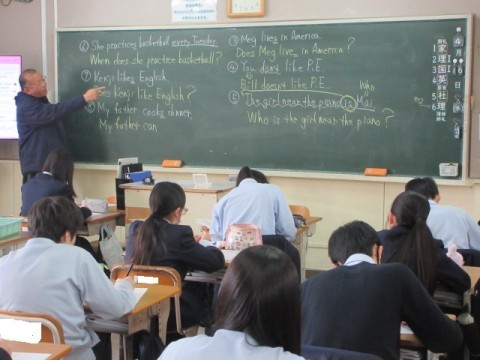 ⑥ She practices basketball every Tuesday.
When does she practice basketball?
⑦ Kenji likes English.
Kenji like English?
My father cooks dinner.
My father can
③ Meg lives in America.
Does Meg live in America?
④ You don't like P.E.
Bill doesn't like P.E.
Who
⑤ The girl near the piano is Mai.
Who is the girl near the piano?
4月
日
1 家
2 理
3 国
4 英
5 社
6 理